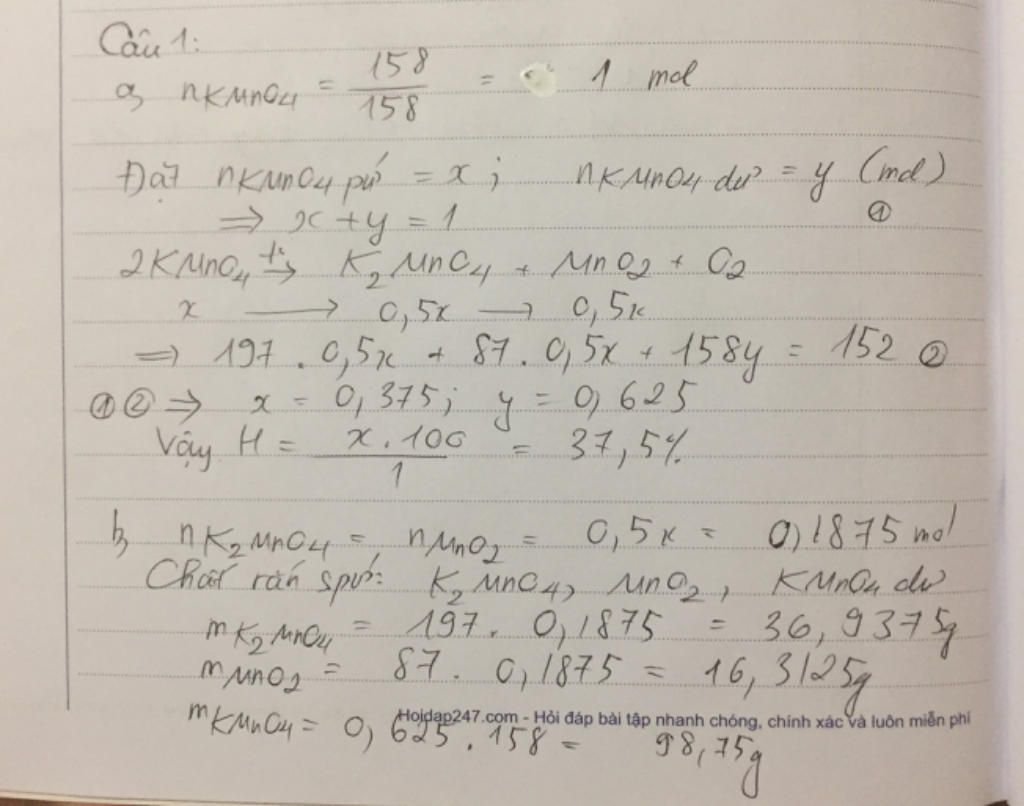 Câu 1:
a, nKMnO4 = 158/158 = 1 mol
Đặt nKMnO4 pứ = x ; nKMnO4 dư = y (mol)
⇒ x + y = 1 ①
2KMnO4 t°→ K2MnO4 + MnO2 + O2
x → 0,5x → 0,5x
⇒ 197 . 0,5x + 87 . 0,5x + 158y = 152 ②
① ② ⇒ x = 0,375; y = 0,625
Vậy H = x . 100/1 = 37,5%
b, nK2MnO4 = nMnO2 = 0,5x = 0,1875 mol
Chất rắn spứ: K2MnO4, MnO2, KMnO4 dư
mK2MnO4 = 197 . 0,1875 = 36,9375g
mMnO2 = 87 . 0,1875 = 16,3125g
Hoidap247.com - Hỏi đáp bài tập nhanh chóng, chính xác và luôn miễn phí
mKMnO4 = 0,625 . 158 = 98,75g